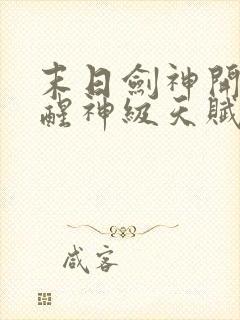 末日劍神開
醒神級天賦
咸客